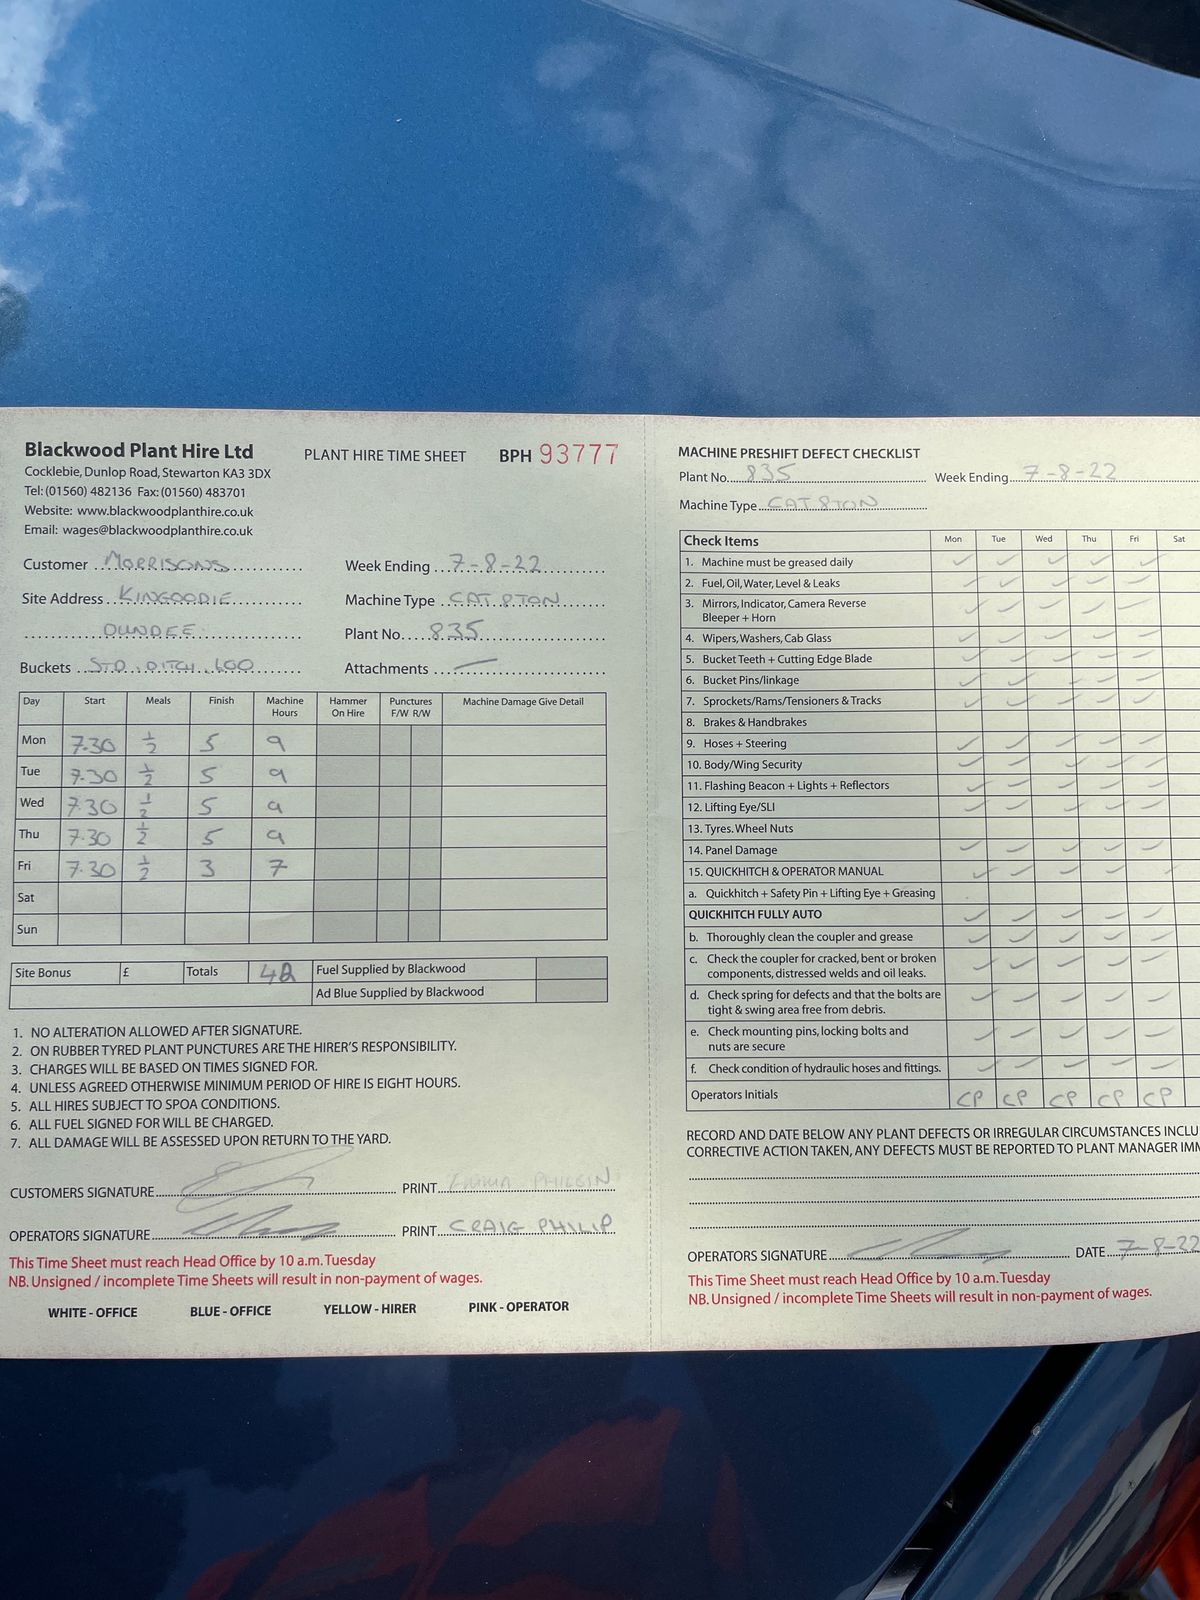 Blackwood Plant Hire Ltd
PLANT HIRE TIME SHEET BPH 93777
Cocklebie, Dunlop Road, Stewarton KA3 3DX
Tel: (01560) 482136 Fax: (01560) 483701
Website: www.blackwoodplanthire.co.uk
Email: wages@blackwoodplanthire.co.uk
Customer MORRISONS Week Ending 7-8-22
Site Address KINGOODIE Machine Type CAT 8TON
DUNDEE Plant No. 835
Buckets STD. DITCH. 600 Attachments —
Day Start Meals Finish Machine Hours Hammer On Hire Punctures F/W R/W Machine Damage Give Detail
Mon 7.30 ½ 5 9
Tue 7.30 ½ 5 9
Wed 7.30 ½ 5 9
Thu 7.30 ½ 5 9
Fri 7.30 ½ 3 7
Sat
Sun
Site Bonus £ Totals Fuel Supplied by Blackwood
Ad Blue Supplied by Blackwood
1. NO ALTERATION ALLOWED AFTER SIGNATURE.
2. ON RUBBER TYRED PLANT PUNCTURES ARE THE HIRER'S RESPONSIBILITY.
3. CHARGES WILL BE BASED ON TIMES SIGNED FOR.
4. UNLESS AGREED OTHERWISE MINIMUM PERIOD OF HIRE IS EIGHT HOURS.
5. ALL HIRES SUBJECT TO SPOA CONDITIONS.
6. ALL FUEL SIGNED FOR WILL BE CHARGED.
7. ALL DAMAGE WILL BE ASSESSED UPON RETURN TO THE YARD.
CUSTOMERS SIGNATURE PRINT
OPERATORS SIGNATURE PRINT CRAIG PHILIP
This Time Sheet must reach Head Office by 10 a.m. Tuesday
NB. Unsigned / incomplete Time Sheets will result in non-payment of wages.
WHITE - OFFICE BLUE - OFFICE YELLOW - HIRER PINK - OPERATOR
MACHINE PRESHIFT DEFECT CHECKLIST
Plant No. 835 Week Ending 7-8-22
Machine Type CAT 8TON
Check Items Mon Tue Wed Thu Fri Sat
1. Machine must be greased daily ✓ ✓ ✓ ✓ ✓
2. Fuel, Oil, Water, Level & Leaks ✓ ✓ ✓ ✓ ✓
3. Mirrors, Indicator, Camera Reverse
Bleeper + Horn ✓ ✓ ✓ ✓ ✓
4. Wipers, Washers, Cab Glass ✓ ✓ ✓ ✓ ✓
5. Bucket Teeth + Cutting Edge Blade ✓ ✓ ✓ ✓ ✓
6. Bucket Pins/linkage ✓ ✓ ✓ ✓ ✓
7. Sprockets/Rams/Tensioners & Tracks ✓ ✓ ✓ ✓ ✓
8. Brakes & Handbrakes
9. Hoses + Steering ✓ ✓ ✓ ✓ ✓
10. Body/Wing Security ✓ ✓ ✓ ✓ ✓
11. Flashing Beacon + Lights + Reflectors ✓ ✓ ✓ ✓ ✓
12. Lifting Eye/SLI ✓ ✓ ✓ ✓ ✓
13. Tyres. Wheel Nuts
14. Panel Damage ✓ ✓ ✓ ✓ ✓
15. QUICKHITCH & OPERATOR MANUAL ✓ ✓ ✓ ✓ ✓
a. Quickhitch + Safety Pin + Lifting Eye + Greasing
QUICKHITCH FULLY AUTO ✓ ✓ ✓ ✓ ✓
b. Thoroughly clean the coupler and grease ✓ ✓ ✓ ✓ ✓
c. Check the coupler for cracked, bent or broken
components, distressed welds and oil leaks. ✓ ✓ ✓ ✓ ✓
d. Check spring for defects and that the bolts are
tight & swing area free from debris. ✓ ✓ ✓ ✓ ✓
e. Check mounting pins, locking bolts and
nuts are secure ✓ ✓ ✓ ✓ ✓
f. Check condition of hydraulic hoses and fittings. ✓ ✓ ✓ ✓ ✓
Operators Initials CP CP CP CP CP
RECORD AND DATE BELOW ANY PLANT DEFECTS OR IRREGULAR CIRCUMSTANCES INCLU
CORRECTIVE ACTION TAKEN, ANY DEFECTS MUST BE REPORTED TO PLANT MANAGER IMM
OPERATORS SIGNATURE DATE 7-8-22
This Time Sheet must reach Head Office by 10 a.m. Tuesday
NB. Unsigned / incomplete Time Sheets will result in non-payment of wages.